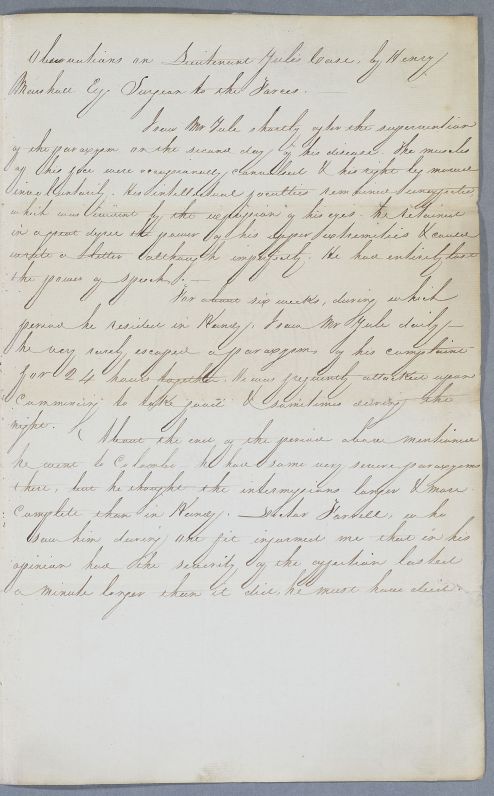 Observations on Lieutenant Yule's Case, by Henry
Marshall Esq. Surgeon to the Forces. —
I saw Mr Yule shortly after the supervention
of the paroxysm on the second day of his disease. The muscles
of his face were occasionally convulsed & his right leg moved
involuntarily. His intellectual faculties remained unaffected
which was evident by the expression of his eyes. He retained
in a great degree the power of his upper extremities & could
write a letter although imperfectly. He had entirely lost
the power of speech. —
For about six weeks, during which
period he resided in Kandy, I saw Mr Yule daily –
he very rarely escaped a paroxysm of his complaint
for 24 hours together. He was frequently attacked upon
commencing to take food & sometimes during the
night. About the end of the period above mentioned
he went to Colombo – he had some very severe paroxysms
there, but he thought the intermissions longer & more
complete than in Kandy. Doctor Farrell, who
saw him during one fit informed me that in his
opinion had the severity of the affection lasted
a minute longer than it did, he must have died.